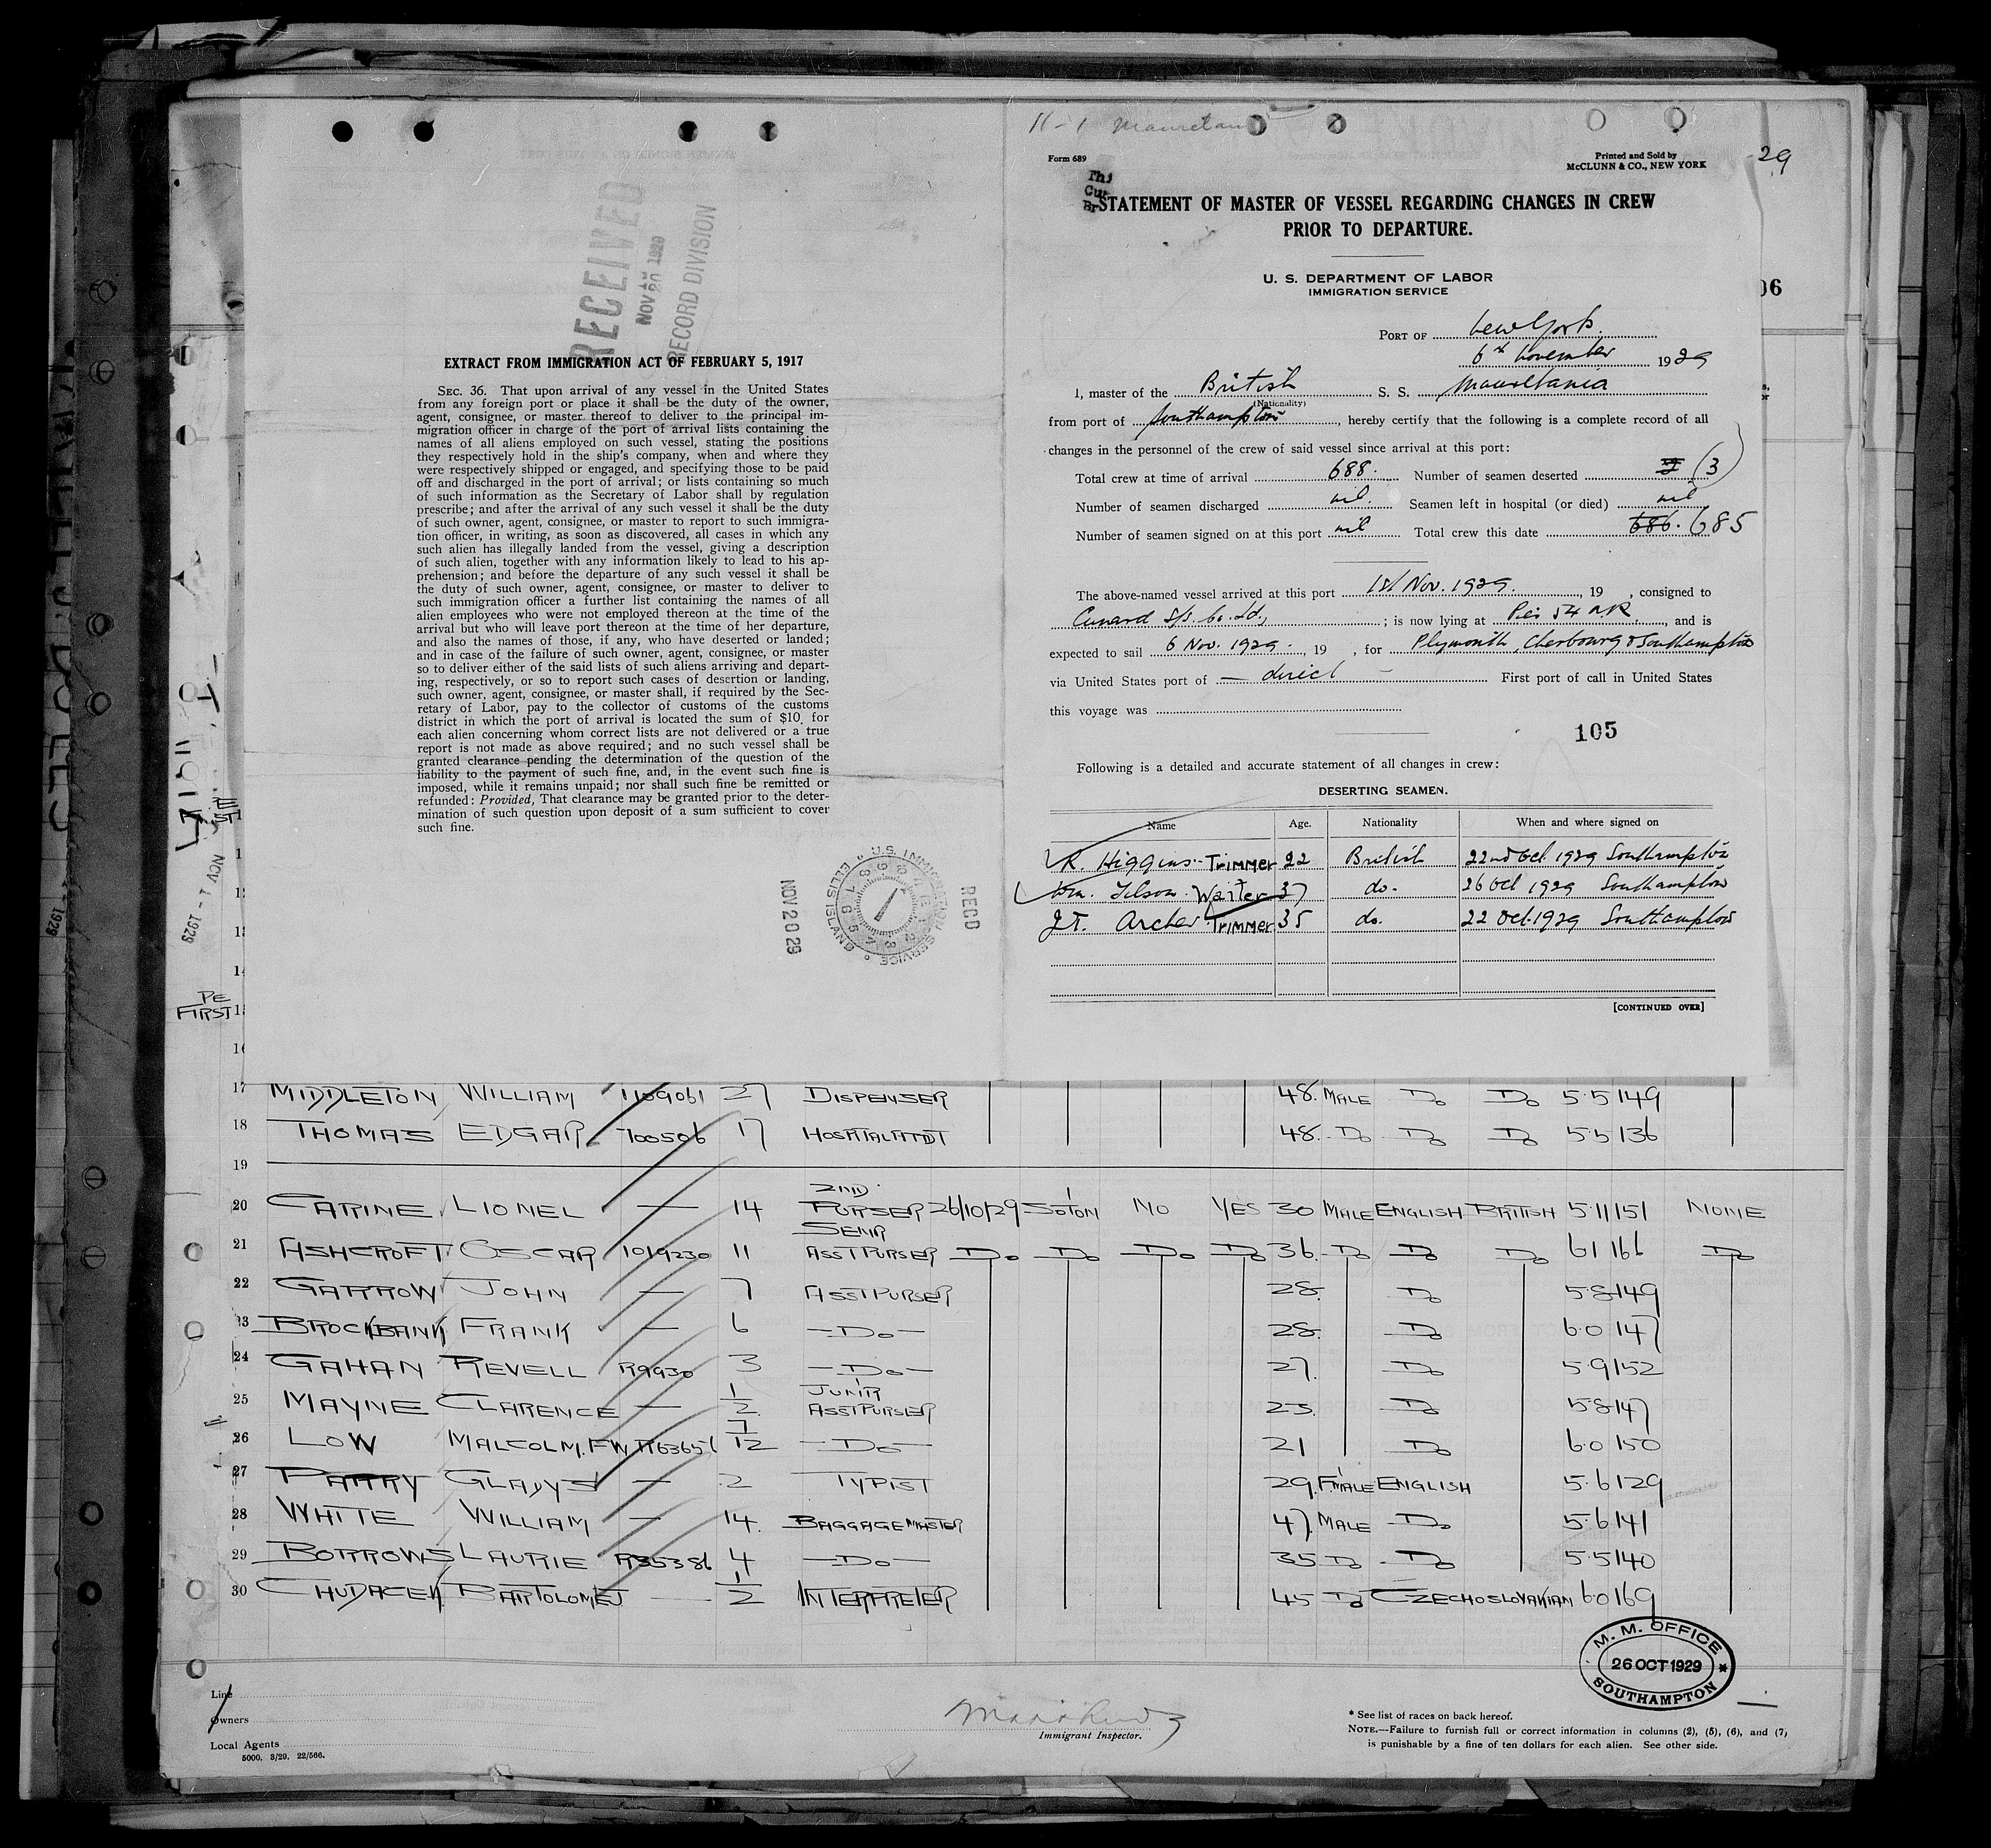 RECEIVED
NOV 20 1929
RECORD DIVISION
EXTRACT FROM IMMIGRATION ACT OF FEBRUARY 5, 1917
SEC. 36. That upon arrival of any vessel in the United States
from any foreign port or place it shall be the duty of the owner,
agent, consignee, or master thereof to deliver to the principal im-
migration officer in charge of the port of arrival lists containing the
names of all aliens employed on such vessel, stating the positions
they respectively hold in the ship's company, when and where they
were respectively shipped or engaged, and specifying those to be paid
off and discharged in the port of arrival; or lists containing so much
of such information as the Secretary of Labor shall by regulation
prescribe; and after the arrival of any such vessel it shall be the duty
of such owner, agent, consignee, or master to report to such immigra-
tion officer, in writing, as soon as discovered, all cases in which any
such alien has illegally landed from the vessel, giving a description
of such alien, together with any information likely to lead to his ap-
prehension; and before the departure of any such vessel it shall be
the duty of such owner, agent, consignee, or master to deliver to
such immigration officer a further list containing the names of all
alien employees who were not employed thereon at the time of the
arrival but who will leave port thereon at the time of her departure,
and also the names of those, if any, who have deserted or landed;
and in case of the failure of such owner, agent, consignee, or master
so to deliver either of the said lists of such aliens arriving and depart-
ing, respectively, or so to report such cases of desertion or landing,
such owner, agent, consignee, or master shall, if required by the Sec-
retary of Labor, pay to the collector of customs of the customs
district in which the port of arrival is located the sum of $10 for
each alien concerning whom correct lists are not delivered or a true
report is not made as above required; and no such vessel shall be
granted clearance pending the determination of the question of the
liability to the payment of such fine, and, in the event such fine is
imposed, while it remains unpaid; nor shall such fine be remitted or
refunded: Provided, That clearance may be granted prior to the deter-
mination of such question upon deposit of a sum sufficient to cover
such fine.
NOV 20 29
U.S. IMMIGRATION SERVICE ELLIS ISLAND
RECD
11-1 Mauretan
Form 689
Printed and Sold by
McCLUNN & CO., NEW YORK
29
STATEMENT OF MASTER OF VESSEL REGARDING CHANGES IN CREW
PRIOR TO DEPARTURE.
U. S. DEPARTMENT OF LABOR
IMMIGRATION SERVICE
PORT OF New York.
6th November 1929
I, master of the British S. S. Mauretania
(Nationality)
from port of Southampton, hereby certify that the following is a complete record of all
changes in the personnel of the crew of said vessel since arrival at this port:
Total crew at time of arrival 688. Number of seamen deserted (3)
Number of seamen discharged nil. Seamen left in hospital (or died) nil
Number of seamen signed on at this port nil Total crew this date 686. 685
The above-named vessel arrived at this port 1st Nov. 1929., 19 , consigned to
Cunard S/S. Co. Ld., ; is now lying at Pier 54 N.R., and is
expected to sail 6 Nov. 1929., 19 , for Plymouth, Cherbourg & Southampton
via United States port of — direct — First port of call in United States
this voyage was
105
Following is a detailed and accurate statement of all changes in crew:
DESERTING SEAMEN.
Name Age. Nationality When and where signed on
R. Higgins - Trimmer 22 British 22nd Oct 1929 Southampton
Wm. Tilson - Waiter 37 do. 26 Oct 1929 Southampton
J.T. Archer Trimmer 35 do. 22 Oct. 1929 Southampton
[CONTINUED OVER]
NOV 1 - 1929
PE
FIRST
17 MIDDLETON WILLIAM 1109061 27 DISPENSER 48. MALE Do Do 5.5 149
18 THOMAS EDGAR 700506 17 HOSPITAL ATTDT 48. Do Do Do 5.5 136
19
20 CARINE LIONEL — 14 2ND PURSER 26/10/29 SOTON NO YES 30 MALE ENGLISH BRITISH 5.11 151 NONE
21 ASHCROFT OSCAR 1019230 11 SENR ASST PURSER Do Do Do Do 36. Do Do Do 6.1 166 Do
22 GARROW JOHN — 7 ASST PURSER 28. Do 5.8 149
23 BROCKBANK FRANK — 6 —Do— 28. Do 6.0 147
24 GAHAN REVELL R9930 3 —Do— 27. Do 5.9 152
25 MAYNE CLARENCE — 1/2 JUNR ASST PURSER 23. Do 5.8 147
26 LOW MALCOLM. F.W. R63656 7/12 —Do— 21 Do 6.0 150
27 PARRY GLADYS — 2 TYPIST 29. F'MALE ENGLISH 5.6 129
28 WHITE WILLIAM — 14. BAGGAGE MASTER 47. MALE Do 5.6 141
29 BORROWS LAURIE R35386 4 —Do— 35 Do Do 5.5 140
30 CHUDACEK BARTOLOMEJ — 1/2 INTERPRETER 45 Do CZECHOSLOVAKIAN 6.0 169
M. M. OFFICE
26 OCT 1929
SOUTHAMPTON
Line
Owners
Local Agents
5000. 3/29. 22/566.
Immigrant Inspector.
* See list of races on back hereof.
NOTE.—Failure to furnish full or correct information in columns (2), (5), (6), and (7)
is punishable by a fine of ten dollars for each alien. See other side.